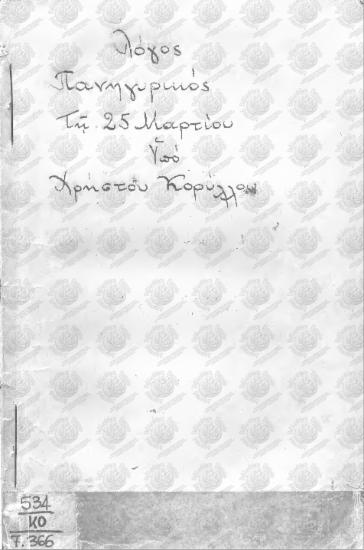 Λόγος
Πανηγυρικός
Τῇ 25 Μαρτίου
Ὑπό
Χρήστου Κορύλλου
534
ΚΟ
7.366